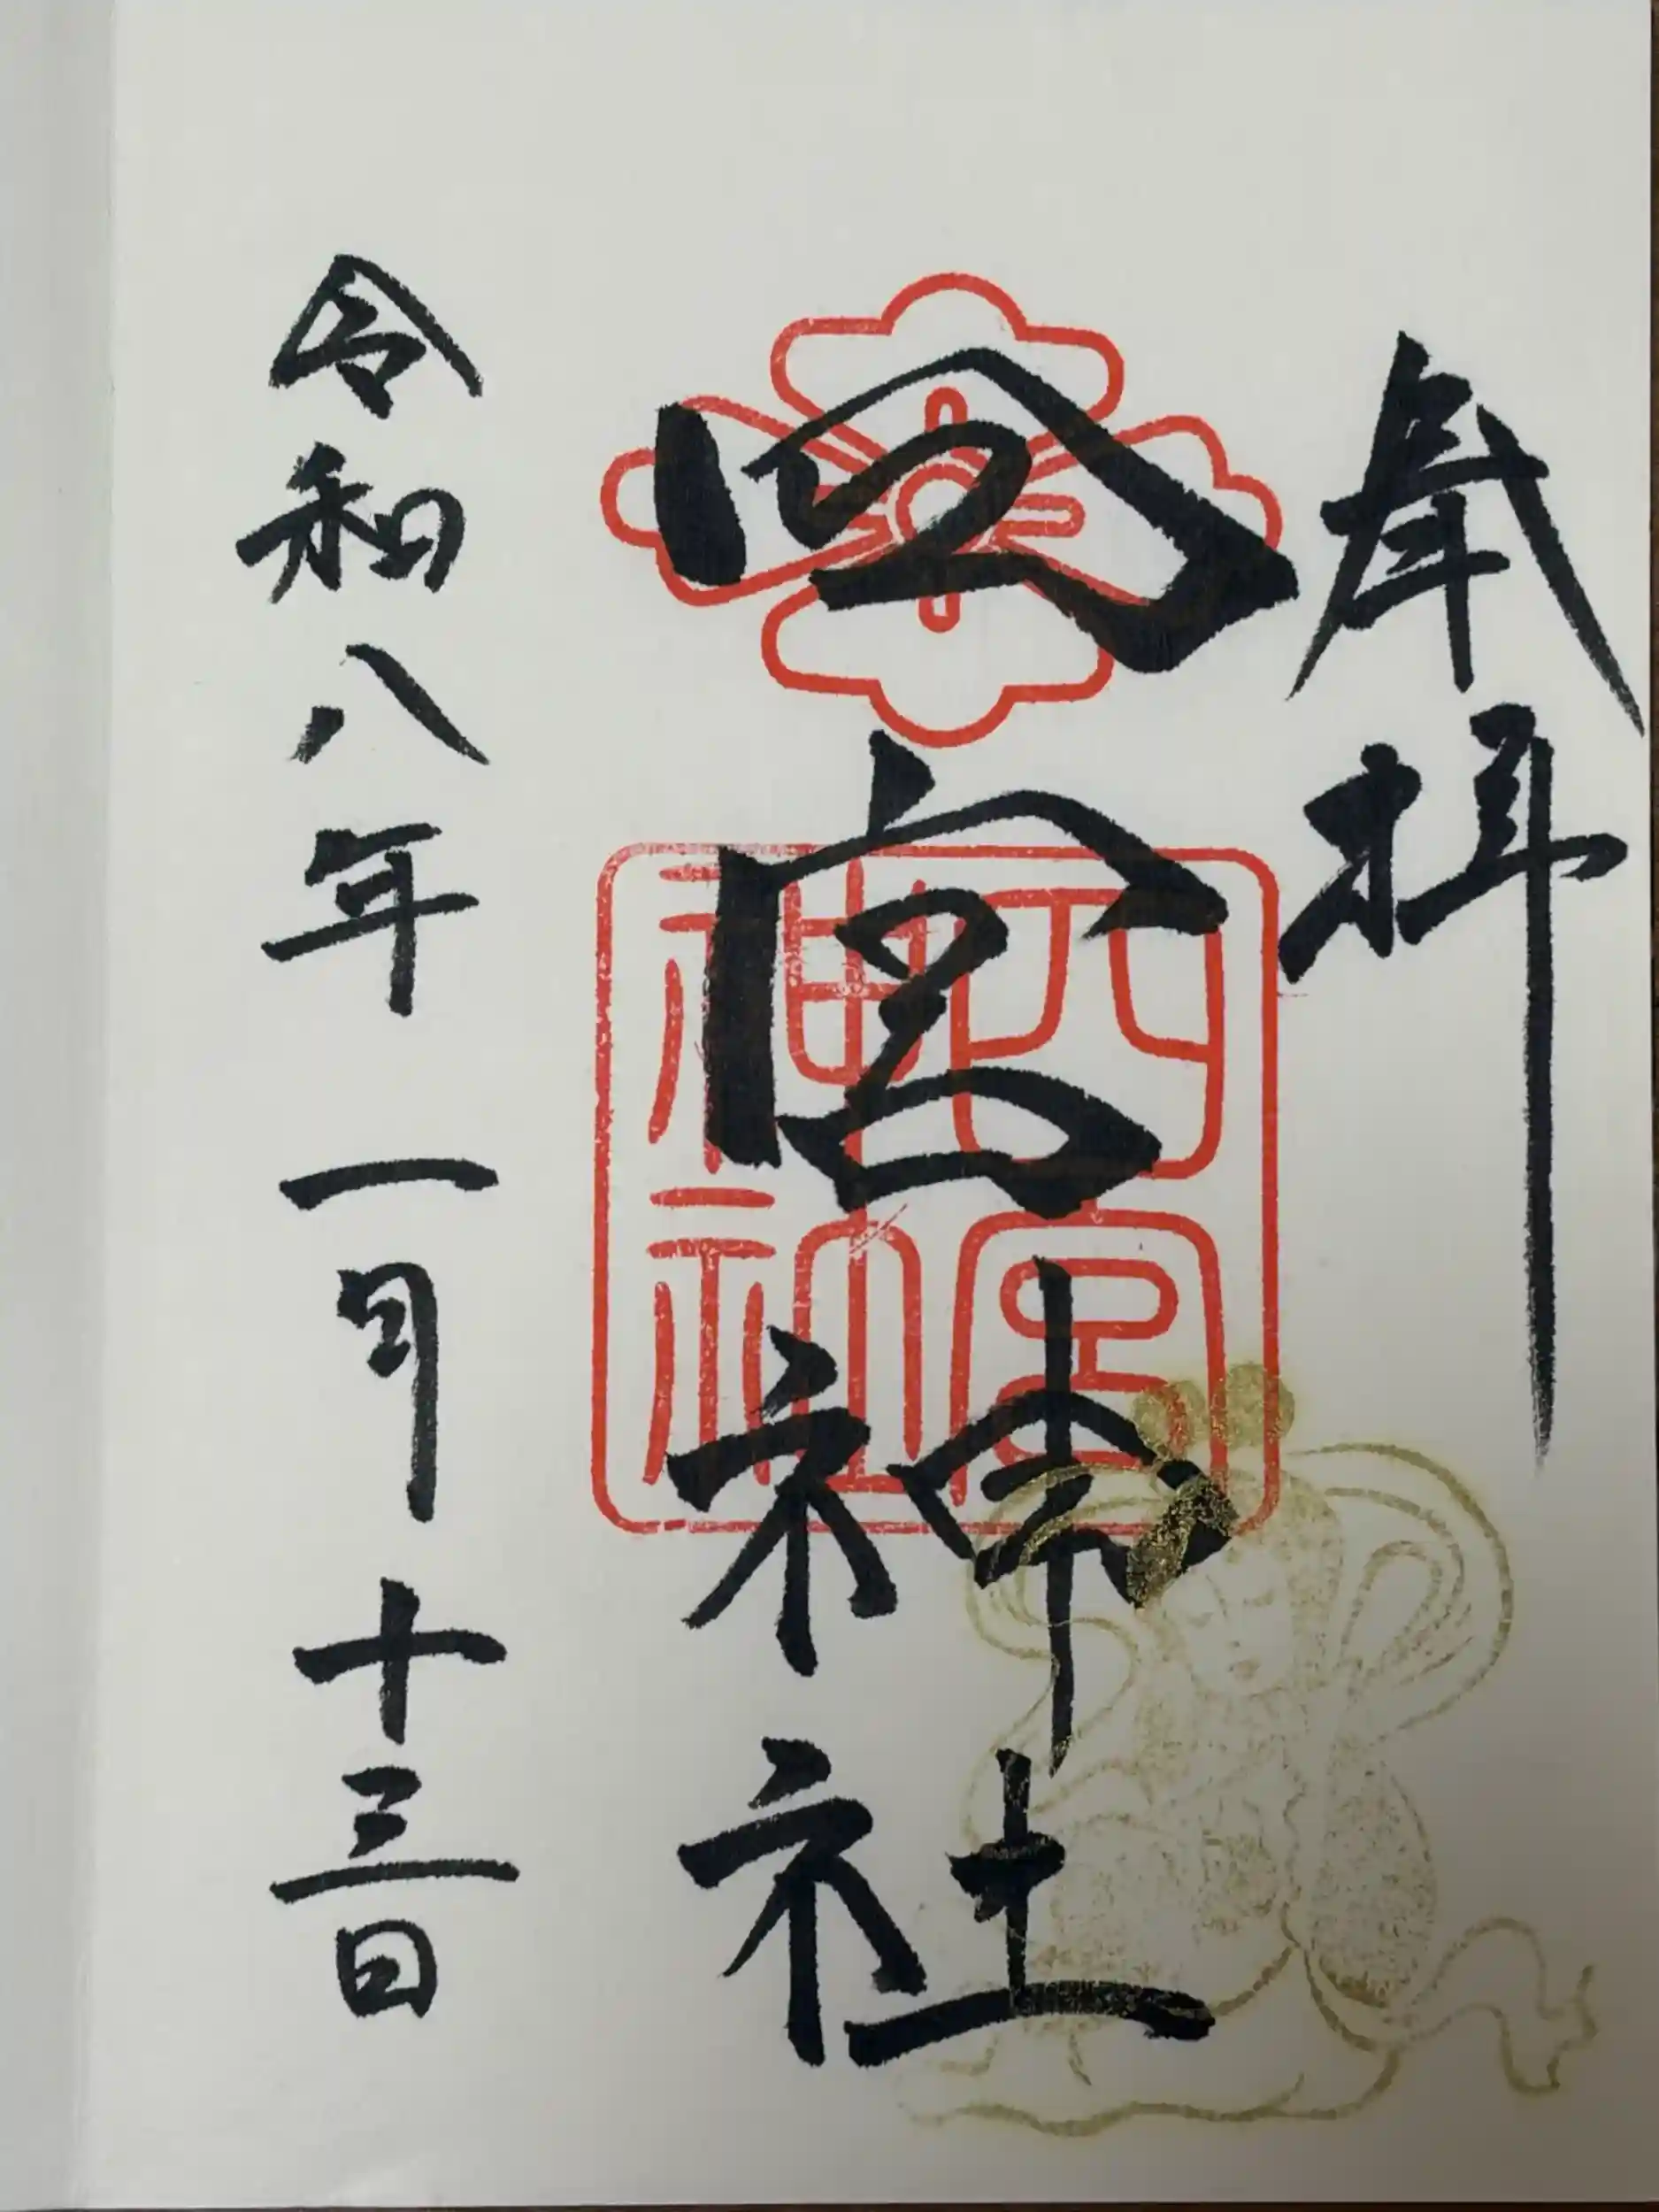 奉拝
四宮神社
四宮
神社
令和八年一月十三日